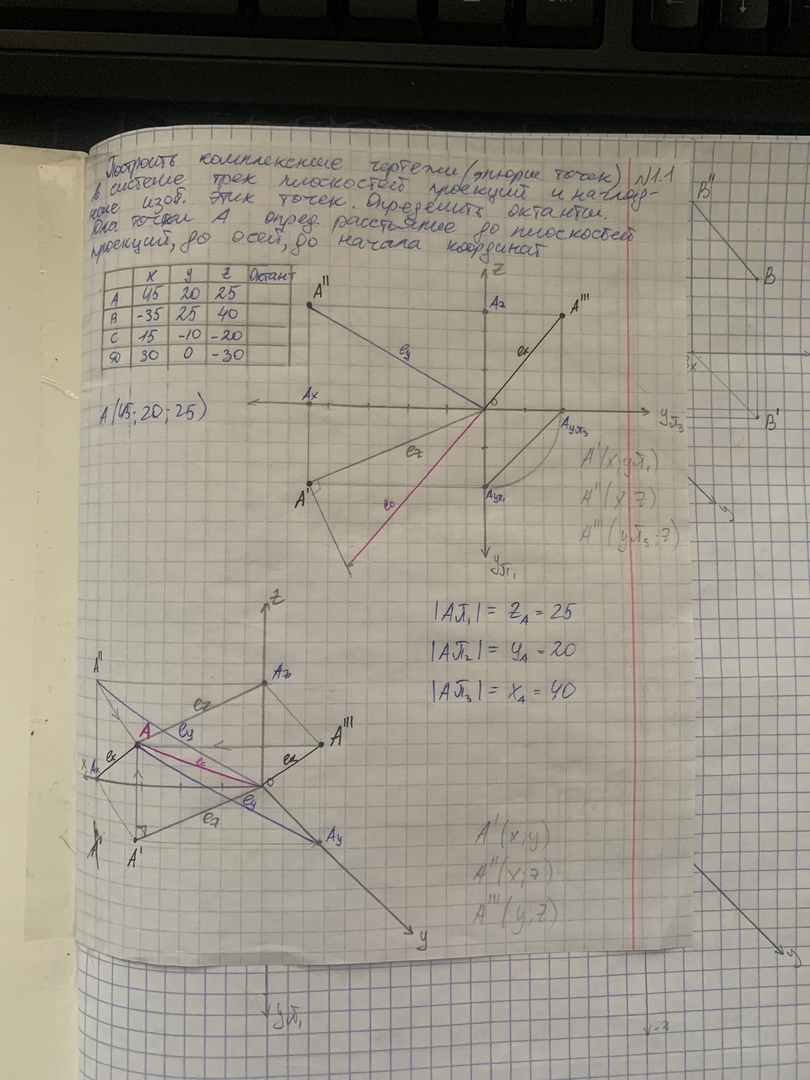 Построить комплексные чертежи (эпюры точек) N1.1
в системе трех плоскостей проекций и нагляд-
ное изоб. этих точек. Определить октанты.
Для точки А опред. расстояние до плоскостей
проекций, до осей, до начала координат
x y z Октант
A 45 20 25
B -35 25 40
C 15 -10 -20
D 30 0 -30
A(45; 20; 25)
z
A'' Az A'''
ly lx
Ax 0
Ayπ3 yπ3
lz
A' l0 Ayπ1
yπ1
A'(x; yπ1)
A''(x; z)
A'''(yπ3; z)
B''
B
x
B'
y
|Aπ1| = ZA = 25
|Aπ2| = yA = 20
|Aπ3| = XA = 40
z
A'' Az
lz
A ly A'''
lx l0 lx
x Ax 0
ly
lz
A' A' Ay
y
A'(x; y)
A''(x; z)
A'''(y; z)
y
yπ1
-z